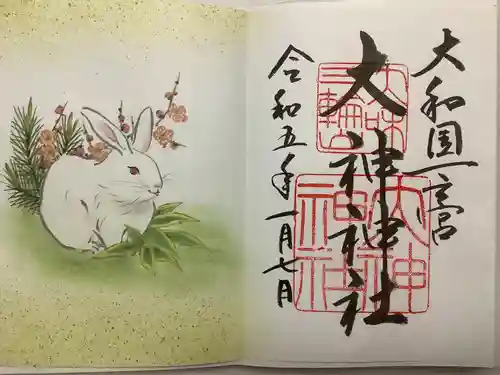 大和国一宮
大神神社
三輪
大神
神社
令和五年一月七日